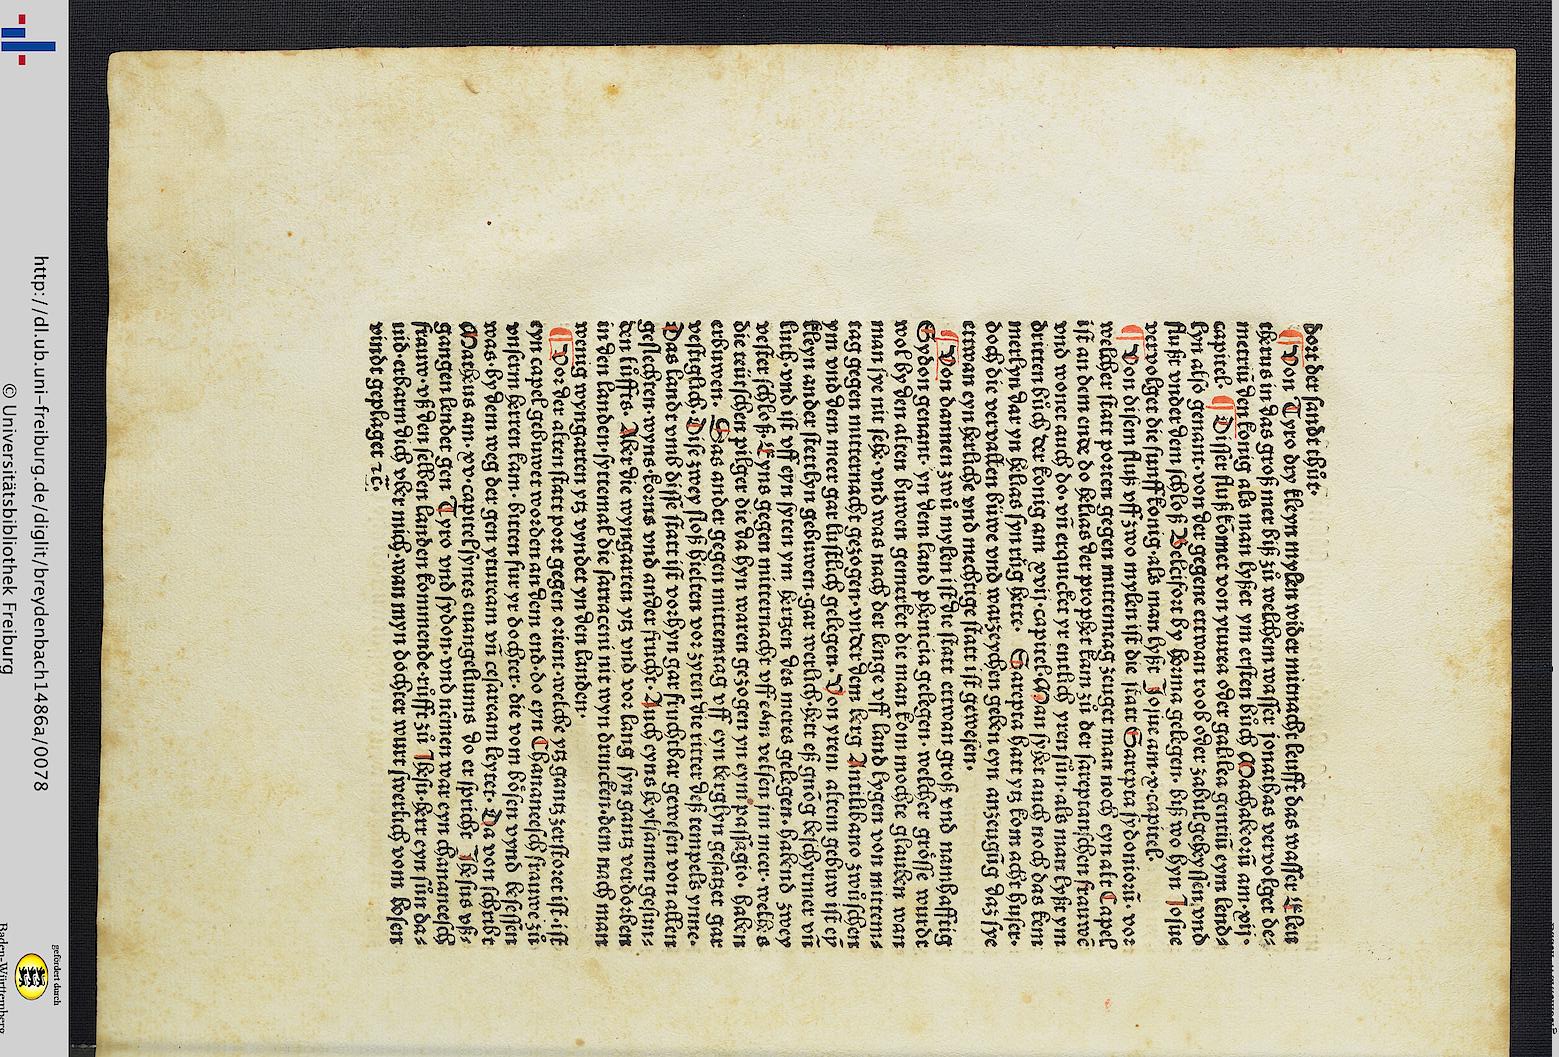 dort der sandt thůt.
¶ Von Tyro dry kleyn mylen wider mitnacht leufft das wasser Eleu
therus in das groß mer biß zů welchem wasser jonathas vervolget de-
metriū den kōnig als man lyßet ym ersten bůch Machabeoꝝ am .xij.
capitel. ¶ Disser fluß kōmet von yturea oder galilea gentiū eym lend-
lyn also genant. von der gegene ettwan roob oder zabul geheyssen, vnd
flußt vnder dem schloß Belcifort by herma gelegen. biß wo hyn Josue
vervolget die funff kōnig. als man lyßt Josue am .x. capitel.
¶ Von disem fluß vff zwo mylen ist die statt Sarepta sydonioꝝ. vor
welcher statt porten gegen mittemtag zeuget man noch eyn alt Capel
ist an dem ende do helias der prophet kam zů der sareptanischen frauwē
vnd wonet auch do. vn̄ erquicket yr entlich yren sün. als man lyßt ym
dritten bůch der kōnig am .xvij. capitel. Man syhet auch noch das kem
merlyn dar yn helias syn růg hette. Sarepta hatt ytz kom acht huser.
doch die vervallen büwe vnd warzeychen geben eyn anzeugūg daz sye
ettwan eyn herliche vnd mechtige statt ist gewesen.
¶ Von dannen zwů mylen ist die statt ettwan groß vnd namhafftig
Sydon genant. yn dem land phenicia gelegen. welcher grōsse wurdt
wol by den alten buwen gemerket die man kom mochte glauben wan
man sye nit sehe. vnd was nach der lenge vff land lygen von mittem-
tag gegen mitternacht gezogen. vnder dem berg Antilibano zwüschen
ym vnd dem meer gar lustlich gelegen. Von yrem altem gebuw ist ey
kleyn ander stettlyn gebuwen. gar werlich. hett eß gnōg beschymer vn̄
lich. vnd ist vff eyn syten ym hertzen des meres gelegen. habend zwey
vester schloß. Eyns gegen mitternacht vff eym velsen jm meer. welchs
die teütschen pilger die da hyn waren gezogen yn eym passagio. haben
erbuwen. Das ander gegen mittemtag vff eyn berglyn gesatzet gar
vestiglich. Dise zwey sloß hielten vor zyten die ritter deß tempels ynne.
Das landt vmb disse statt ist vorhyn gar fruchtbar gewesen von allen
geslechten. wyns. korns vnd ander frucht. Auch eyns heylsamen gesun-
den lüfftes. Aber die wyngarten ytz vnd vor lang syn gantz verdorben
in den landen. syttemal die sarraceni nit wyn drincken. dem nach man
wenig wyngarten ytz vyndet yn den landen.
¶ Vor der alten statt port gegen orient. welche ytz gantz zerstoret ist. ist
eyn capel gebuwet worden an dem end. do eyn Chananeesch frauwe zů
vnserm herren kam. bitten fur yr dochter. die vom bōsen vynd besessen
was. by dem weg der gen ytuream vn̄ cesaream leytet. Da von schribt
Matheus am .xv. capitel synes euangeliums do er spricht Jhesus vß-
gangen lender gen Tyro vnd sydon. vnd nēmen war eyn chananeesch
frauw. vß den selben landen kommende. rüfft zů Jhesu. herr eyn sün da-
uid. erbarm dich vber mich. wan myn dochter wurt swerlich vom bōsen
vindt geplaget ⁊c̄.
http://dl.ub.uni-freiburg.de/diglit/breydenbach1486a/0078
© Universitätsbibliothek Freiburg
gefördert durch
Baden-Württemberg